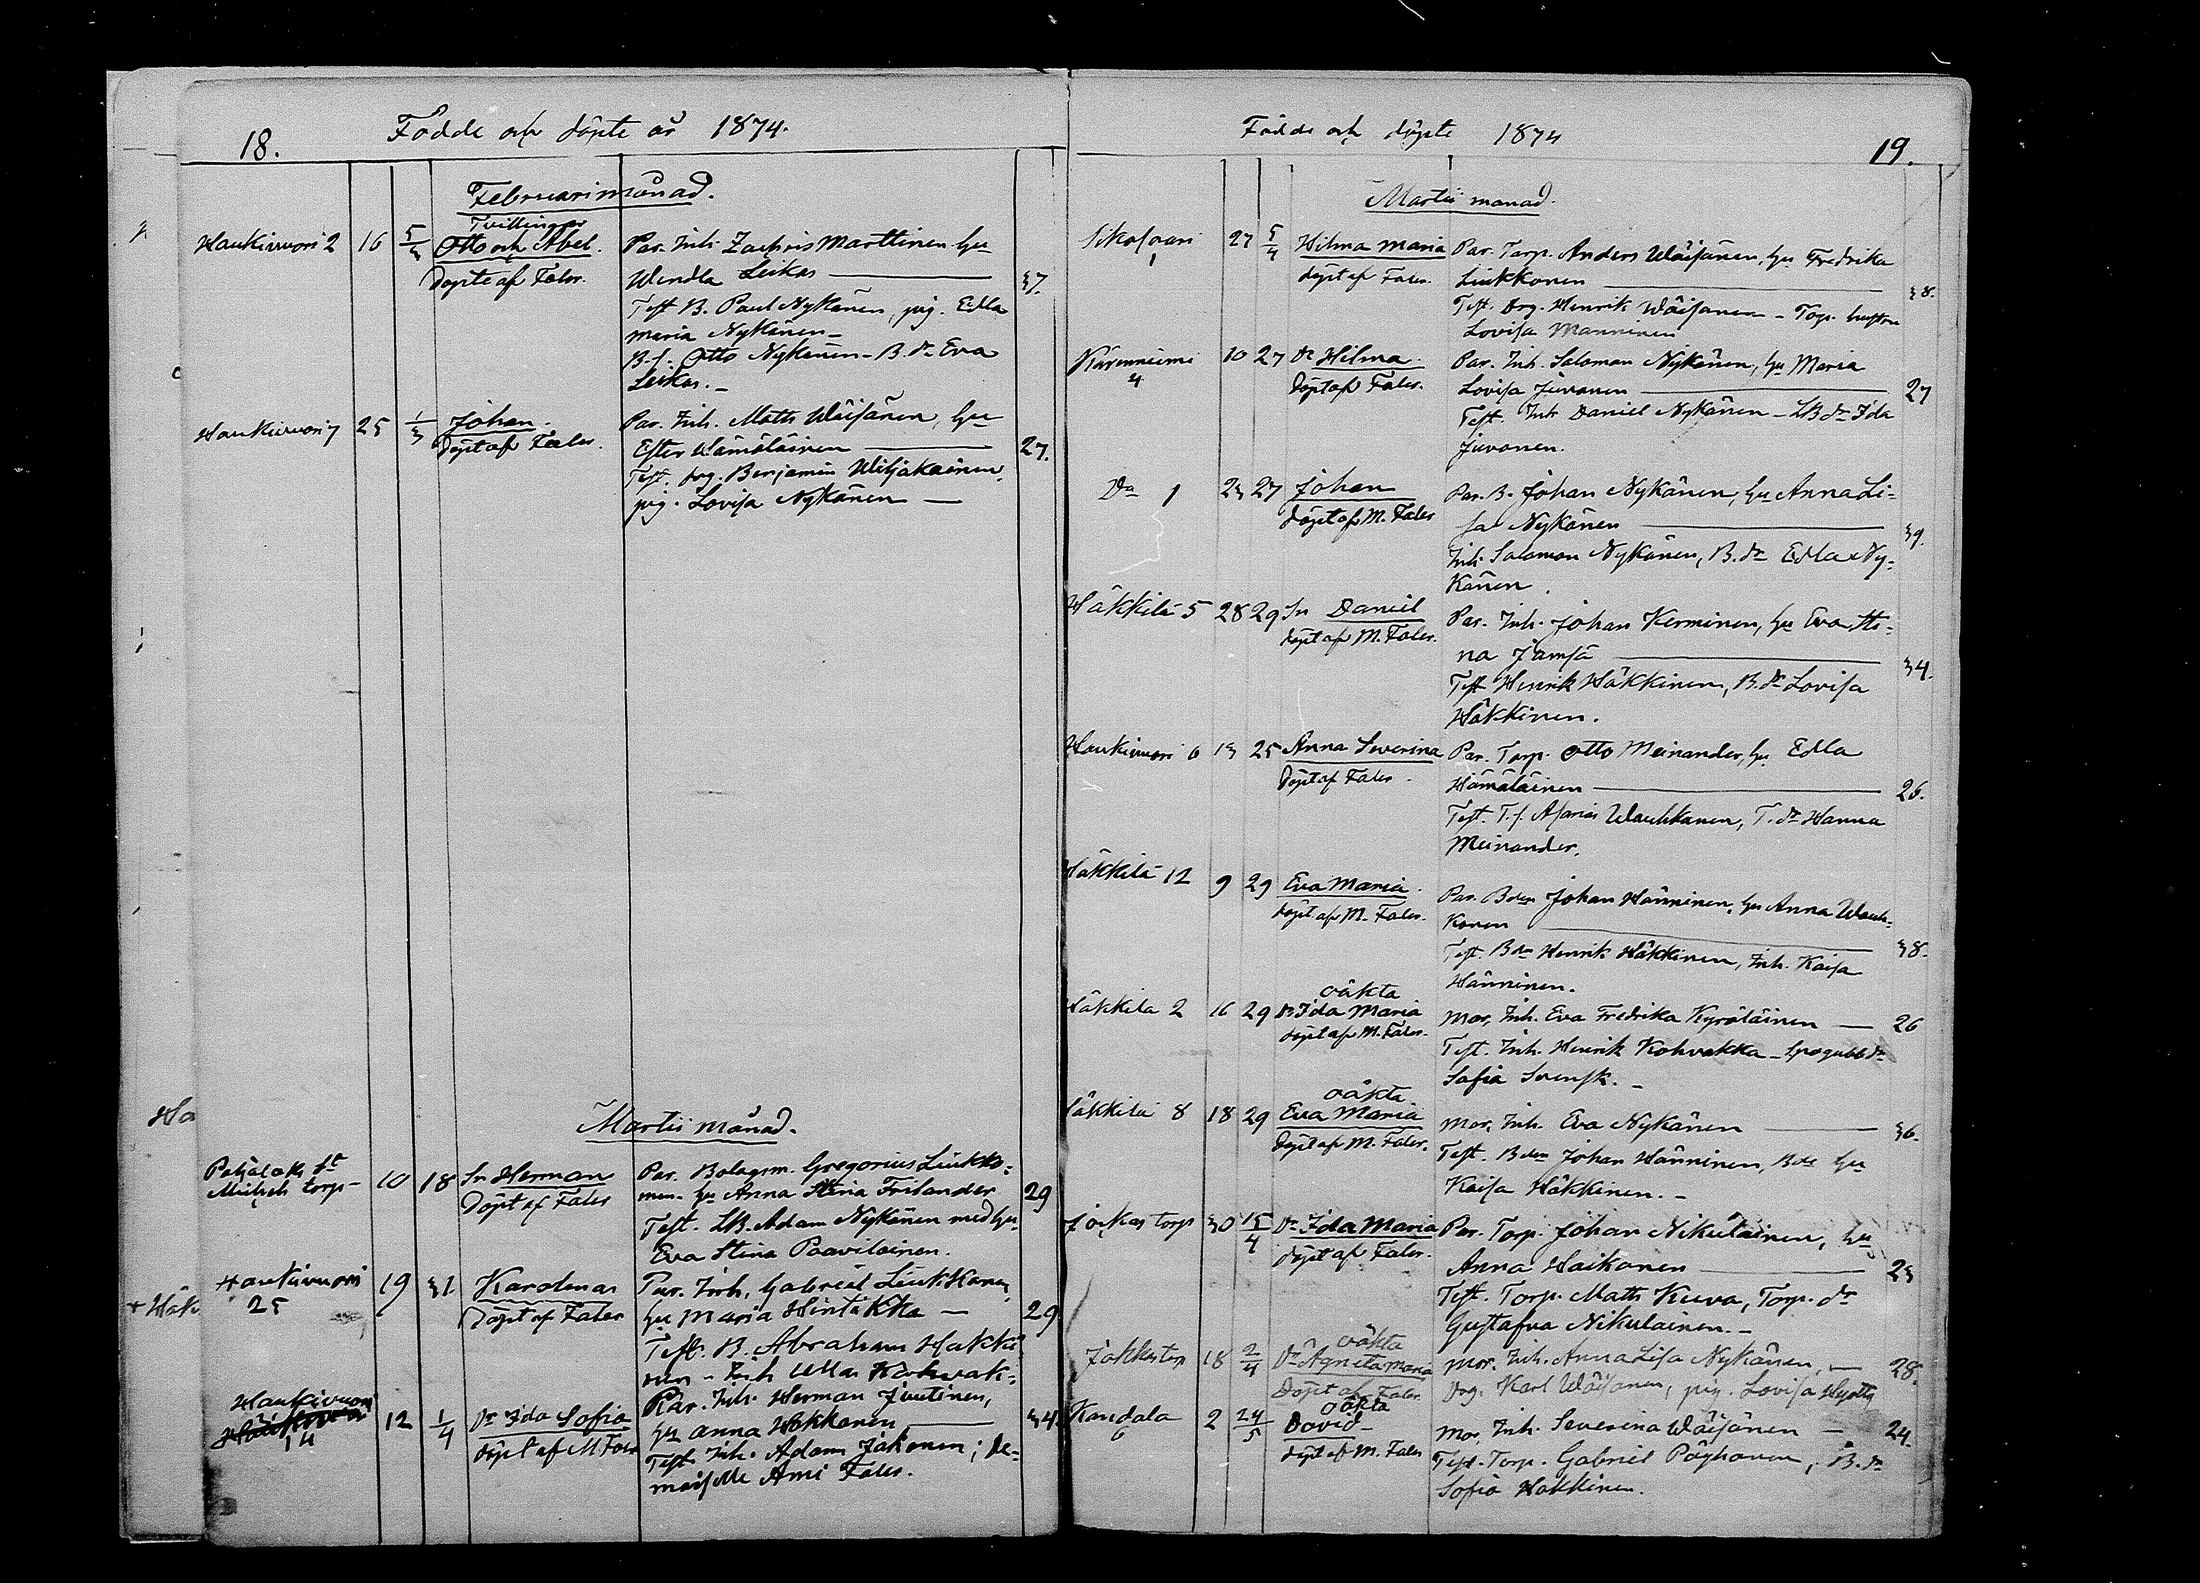 18.
Födde och döpte år 1874.
Februari månad.
Haukivuori 2 16 5/3 Tvillingar
Otto och Abel
döpte af Faler.
Par. Inh. Zachris Marttinen hu
Wendla Leikas 37.
Test B. Paul Nykänen, pig. Edla
Maria Nykänen
B.s. Otto Nykänen - B.dr Eva
Leikas.
Haukivuori 7 25 1/3 Johan
döpt af Faler.
Par. Inh. Matts Wäisänen, hu
Ester Hämäläinen 27.
Test. drg. Benjamin Wiljakainen,
pig. Lovisa Nykänen
Martii månad.
torp 10 18 Sn Herman
Döpt af Faler
Par. Bolagsm. Gregorius Liukko-
nen. hu Anna Stina Frilander 29
Test. LB. Adam Nykänen med hu
Eva Stina Paavilainen.
Haukivuori
25 19 31 Karolina
Döpt af Faler
Par. Inh. Gabriel Liukkonen,
hu Maria Hintikka 29
Test. B. Abraham Häkki
nen - Inh Ulla Kohvak-
Haukivuori
14 12 1/4 Dr Ida Sofia
döpt af M Faler
Par. Inh. Herman Juutinen,
hu Anna Hokkanen 34
Test. Inh. Adam Jakonen; de-
moiselle Ami Faler.
Födde och döpte 1874 19.
Martii månad.
1 27 5/4 Hilma Maria
döpt af Faler.
Par. Torp. Anders Wäisänen, hu Fredrika
Liukkonen 38.
Test. Drg. Henrik Wäisänen - Torp. hustru
Lovisa Manninen
4 10 27 Dr Hilma
Döpt af Faler.
Par. Inh. Salomon Nykänen, hu Maria
Lovisa Juvonen 27
Test. Inh Daniel Nykänen - LB dr Ida
Juvonen.
Do 1 23 27 Johan
döpt af M. Faler
Par. B. Johan Nykänen, hu Anna Li-
sa Nykänen 39.
Inh. Salomon Nykänen, B.dr Edla Ny-
känen.
Häkkilä 5 28 29 Sn Daniel
döpt af M. Faler.
Par. Inh. Johan Kerminen, hu Eva Sti-
na Jämsä 34.
Test Henrik Häkkinen, B.dr Lovisa
Häkkinen.
Haukivuori 6 13 25 Anna Severina
Döpt af Faler.
Par. Torp. Otto Meinander, hu Edla
Hämäläinen 26.
Test. T.s. Asarias Wauhkonen, T.dr Hanna
Meinander.
Häkkilä 12 9 29 Eva Maria.
döpt af M. Faler.
Par. Bden Johan Hänninen, hu Anna Wauh-
konen 38.
Test. Bdn Henrik Häkkinen, Inh. Kaisa
Hänninen.
Häkkilä 2 16 29 oäkta
Dr Ida Maria
döpt af M. Faler.
Mor, Inh. Eva Fredrika Kyröläinen 26
Test. Inh. Henrik Kohvakka -
Sofia Svensk.
Häkkilä 8 18 29 oäkta
Eva Maria
Döpt af M. Faler.
Mor, Inh. Eva Nykänen 36.
Test. Bden Johan Hänninen, Bds hu
Kaisa Häkkinen.
torp 30 15/4 Dr Ida Maria
döpt af Faler.
Par. Torp. Johan Nikulainen, hu
Anna Haikonen 23
Test. Torp. Matts Kuva, Torp. dr
Gustafva Nikulainen.
18 2/4 oäkta
Dr Agneta Maria
Döpt af Faler.
Mor. Inh. Anna Lisa Nykänen, 28.
Drg. Karl Wäisänen, pig. Lovisa
Kandala
6 2 24/5 oäkta
David
döpt af M. Faler
Mor, Inh. Severina Wäisänen 24.
Test. Torp. Gabriel Pöyhönen, B.dr
Sofia Häkkinen.